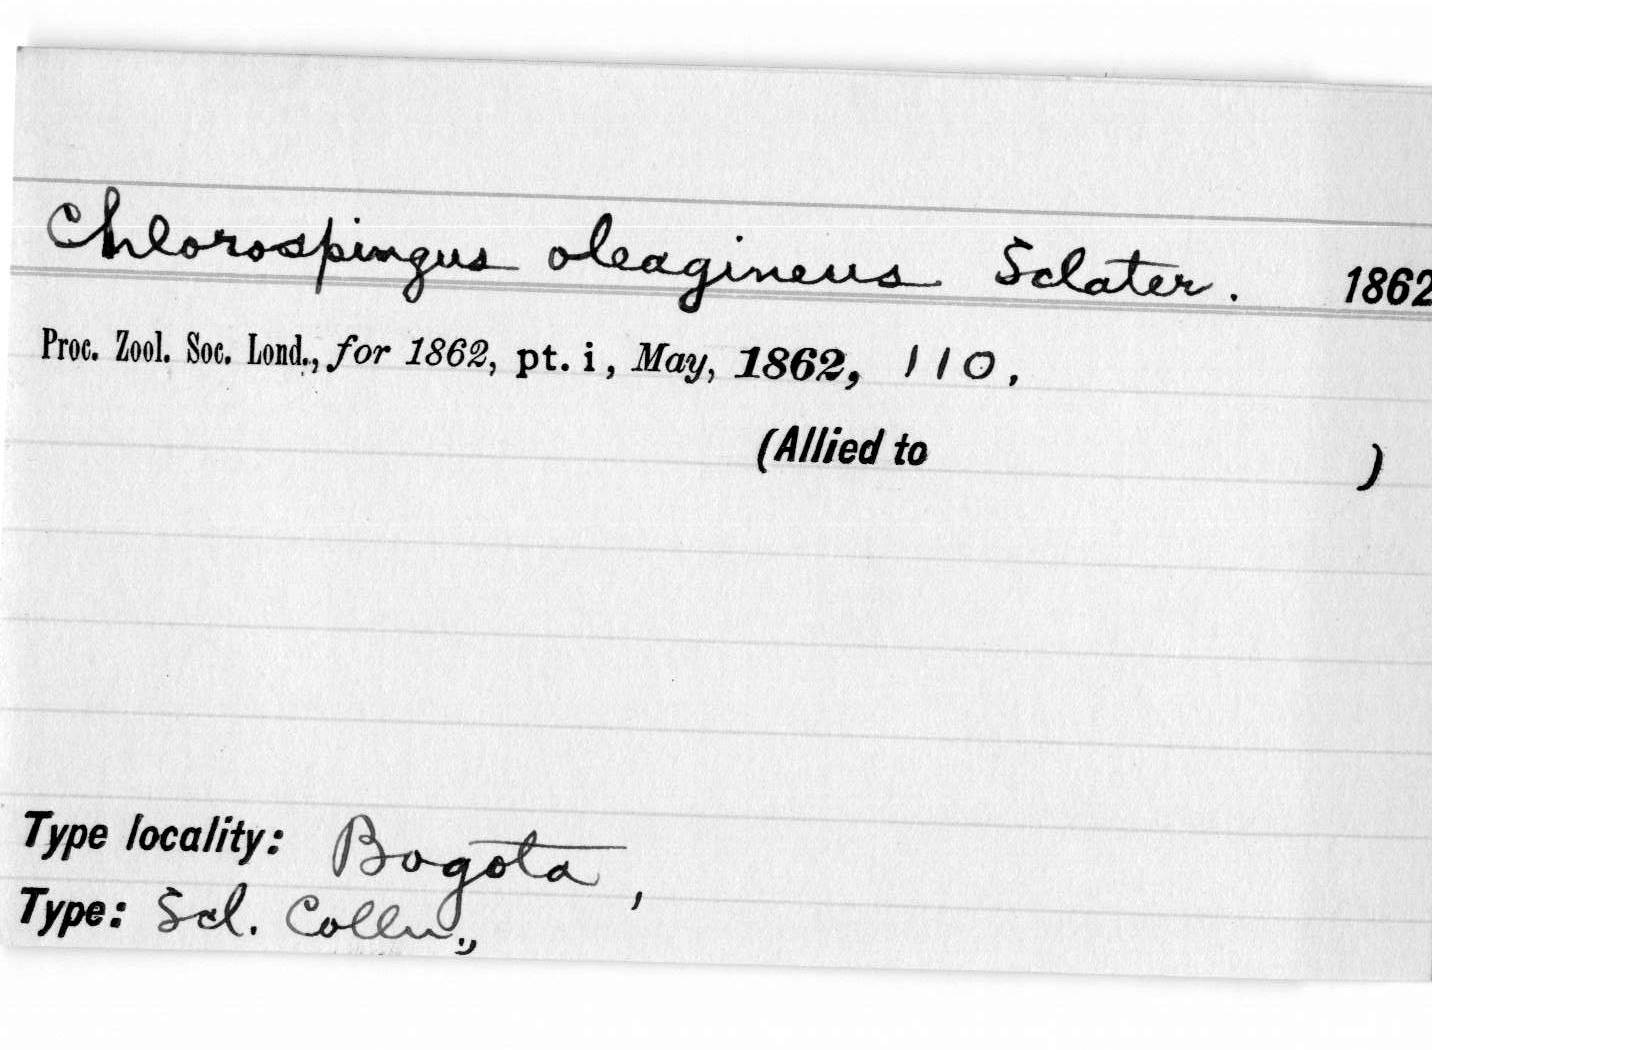 Chlorospingus oleagineus Sclater. 1862
Proc. Zool. Soc. Lond., for 1862, pt. i, May, 1862, 110,
(Allied to )
Type locality: Bogota,
Type: Scl. Colln.,